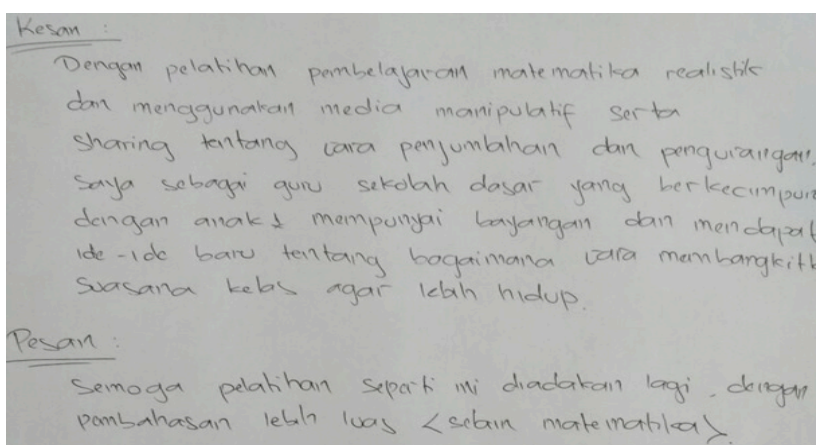 Kesan :
Dengan pelatihan pembelajaran matematika realistik
dan menggunakan media manipulatif serta
sharing tentang cara penjumlahan dan pengurangan.
Saya sebagai guru sekolah dasar yang berkecimpun
dengan anak2 mempunyai bayangan dan mendapat
ide-ide baru tentang bagaimana cara membangkitk
suasana kelas agar lebih hidup.
Pesan :
Semoga pelatihan seperti ini diadakan lagi. dengan
pembahasan lebih luas <selain matematika>